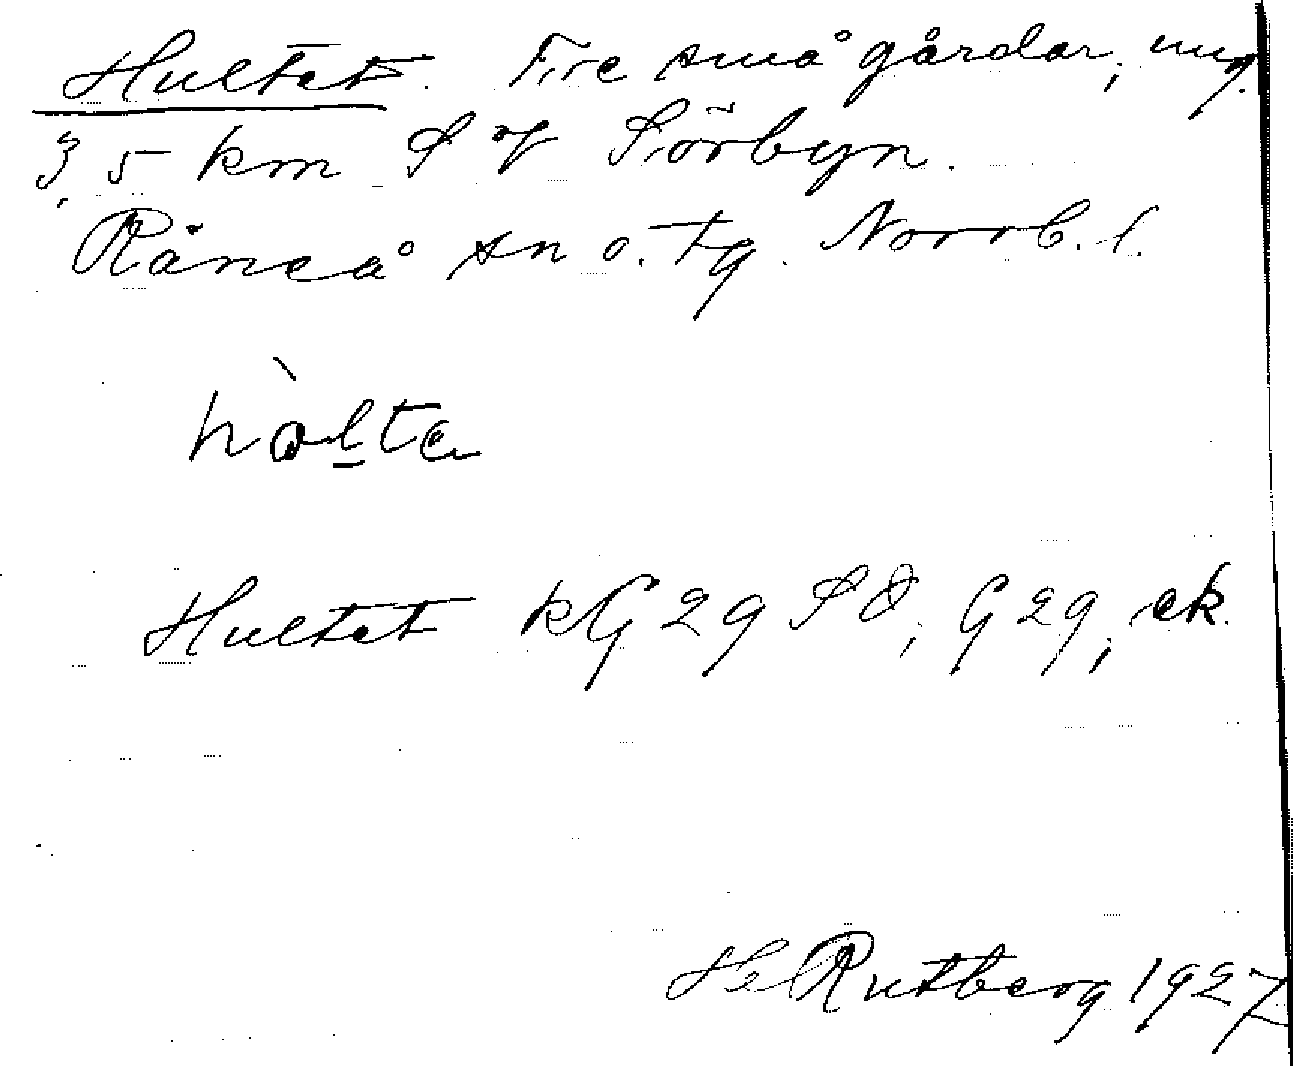 Hultet. Tre små gårdar, ung.
3,5 km S of Sörbyn.
Råneå sn o. tg. Norrb. l.
hòl̠ta
Hultet kG 29 SO, G 29, ek.
Hel Rutberg 1927